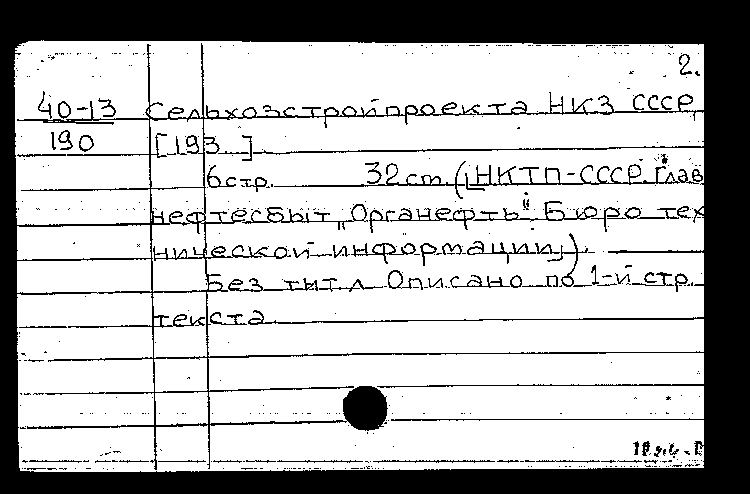 2.
40-13 Сельхозстройпроекта НКЗ СССР,
190 [193 ].
6 стр. 32 ст. (НКТП-СССР. Глав
нефтесбыт „Органефть" Бюро тех
нической информации).
Без тит. л Описано по 1-й стр.
текста.